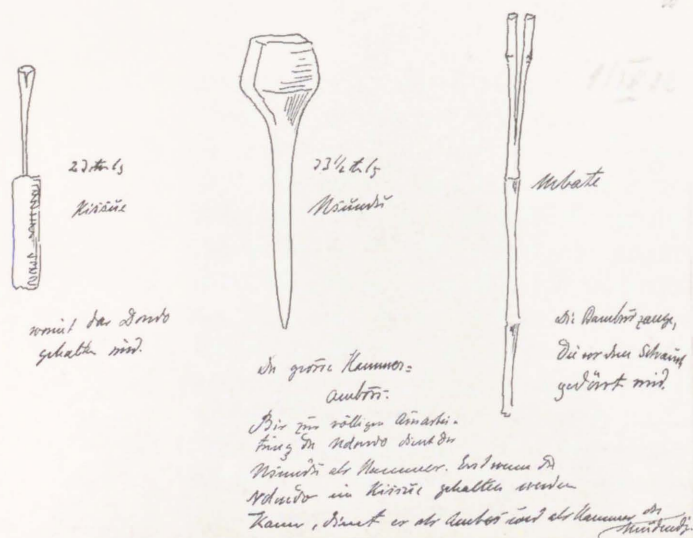 Kissue
womit das Dondo
gehalten wird.
23½ lg
Nsundu
der grosse Hammer=
amboss.
Bis zur völligen Ausarbei-
tung des Ndondo dient der
Nsundu als Hammer. Erst wenn der
Ndondo im Kissue gehalten werden
kann, dient er als Amboss und als Hammer der
Mbate
die Bambuszange,
die vor dem
gedörrt wird.